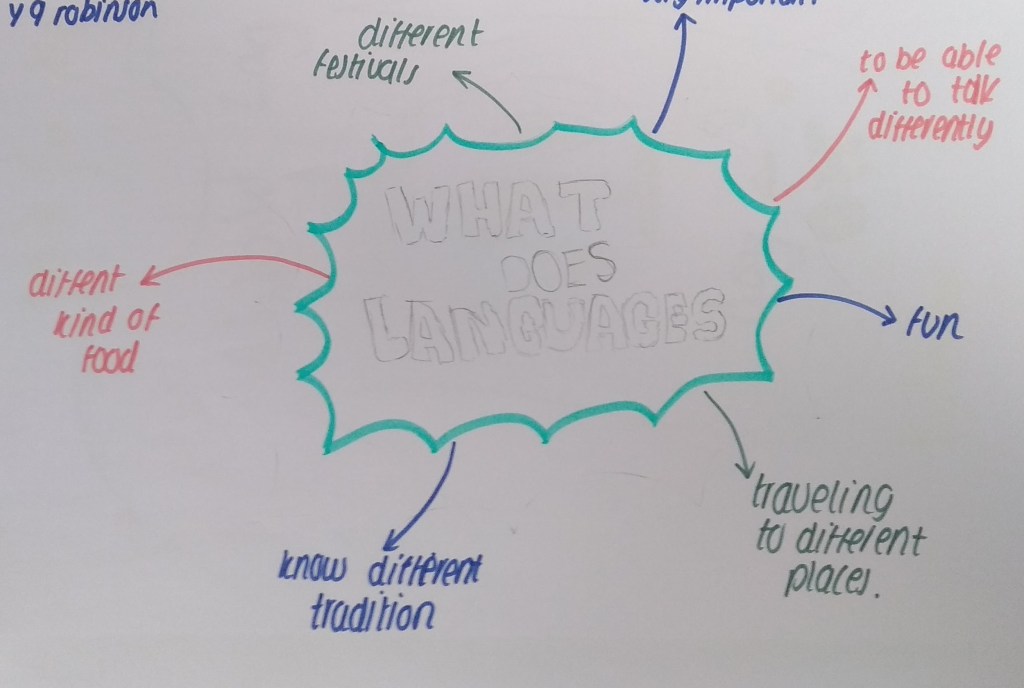 y9 robinson
different
festivals
to be able
to talk
differently
WHAT
DOES
LANGUAGES
diffent
kind of
food
fun
traveling
to different
places.
know different
tradition